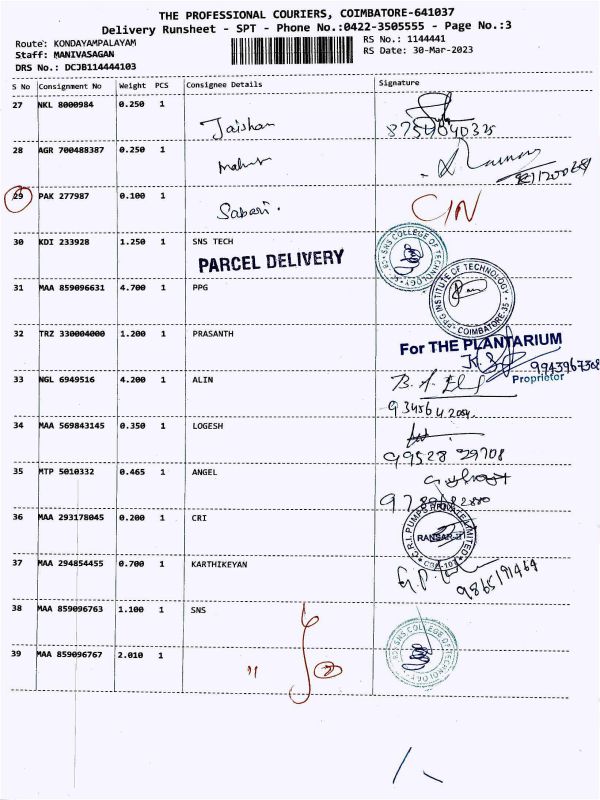 THE PROFESSIONAL COURIERS, COIMBATORE-641037
Delivery Runsheet - SPT - Phone No.:0422-3505555 - Page No.:3
Route: KONDAYAMPALAYAM
RS No.: 1144441
Staff: MANIVASAGAN
RS Date: 30-Mar-2023
DRS No.: DCJB114444103
S No Consignment No Weight PCS Consignee Details Signature
27 NKL 8000984 0.250 1
Jaishan
28 AGR 700488387 0.250 1
29 PAK 277987 0.100 1
Sabari.
C/N
30 KDI 233928 1.250 1 SNS TECH
PARCEL DELIVERY
SNS COLLEGE OF TECHNOLOGY
31 MAA 859096631 4.700 1 PPG
PPG INSTITUTE OF TECHNOLOGY COIMBATORE-35
32 TRZ 330004000 1.200 1 PRASANTH
For THE PLANTARIUM
Proprietor
33 NGL 6949516 4.200 1 ALIN
34 MAA 569843145 0.350 1 LOGESH
99528 29708
35 MTP 5010332 0.465 1 ANGEL
36 MAA 293178045 0.200 1 CRI
C.R.I. PUMPS PRIVATE LIMITED
37 MAA 294854455 0.700 1 KARTHIKEYAN
9865191464
38 MAA 859096763 1.100 1 SNS
SNS COLLEGE OF TECHNOLOGY
39 MAA 859096767 2.010 1
" 2